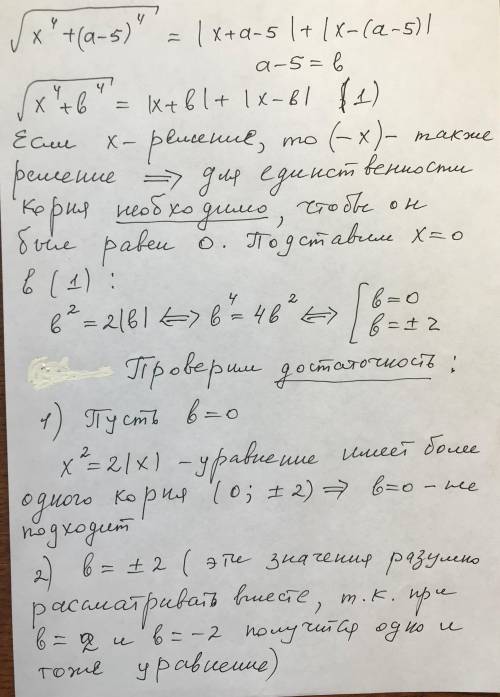 √(x⁴+(a-5)⁴) = |x+a-5|+|x-(a-5)|
a-5=в
√(x⁴+в⁴) = |x+в|+|x-в| (1)
Если x-решение, то (-x)- также
решение ⟹ для единственности
корня необходимо, чтобы он
был равен 0. Подставим x=0
в (1):
в²=2|в| ⟺ в⁴=4в² ⟺ [в=0
в=±2
Проверим достаточность:
1) Пусть в=0
x²=2|x| -уравнение имеет более
одного корня (0; ±2) ⟹ в=0-не
подходит
2) в=±2 (эти значения разумно
рассматривать вместе, т.к. при
в=2 и в=-2 получится одно и
тоже уравнение)